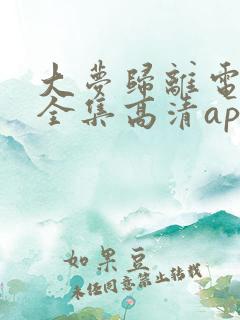 大夢歸離電
全集高清ap
如果豆
未经同意禁止转载